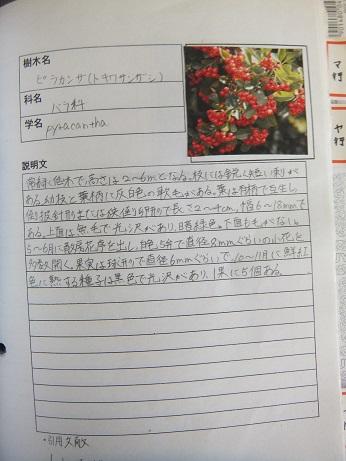 樹木名
ピラカンサ(トキワサンザシ)
科名
バラ科
学名
pyracantha
説明文
常緑低木で、高さは2~6mとなる。枝には鋭く短い刺が
ある。幼枝と葉柄に灰白色の軟毛がある。葉は有柄で互生し、
倒披針形または狭倒卵形で長さ2~4cm、幅6~18mmで
ある。上面は無毛で光沢があり、暗緑色。下面も毛がない。
5~6月に散房花序を出し、白色、5弁で直径8mmぐらいの小花を
多数開く。果実は球形で直径6mmぐらいで、10~11月に鮮紅
色に熟する。種子は黒色で光沢があり、1果に5個ある。
・引用文献
マ
行
ヤ
行